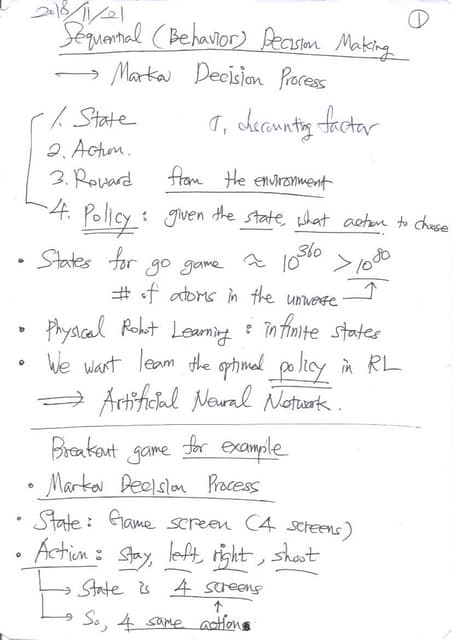 2018/11/21
①
Sequential (Behavior) Decision Making
→ Markov Decision Process
1. State
σ, discounting factor
2. Action.
3. Reward from the environment
4. Policy : given the state, what action to choose
• States for go game ≈ 10^360 > 10^80
# of atoms in the universe
• Physical Robot Learning : infinite states
• We want learn the optimal policy in RL
⇒ Artificial Neural Network.
Breakout game for example
• Markov Decision Process
• State : Game screen (4 screens)
• Action : stay, left, right, shoot
→ State is 4 screens
↑
→ So, 4 same actions